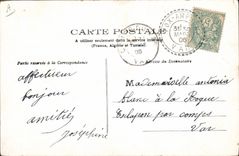 CARTE POSTALE
A utiliser seulement dans le service intérieur
(France, Algérie et Tunisie)
Partie réservée à la Correspondance
Adresse du Destinataire
affectueux
bonjour
amitiés
joséphine
Mademoiselle antonia
blanc à la Roque
par comps
Var